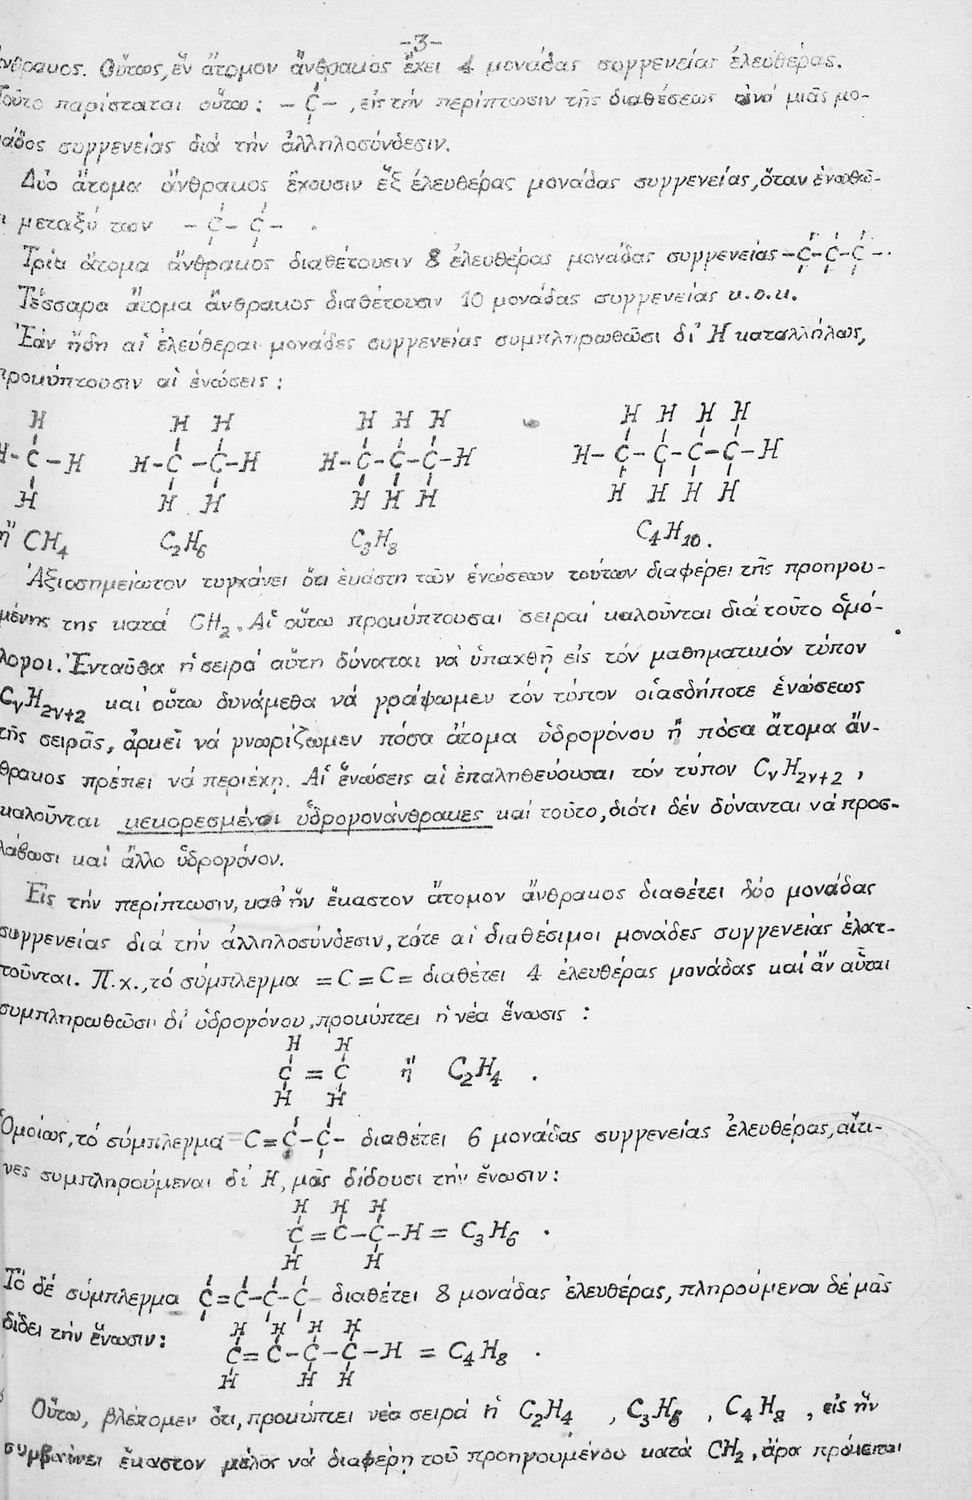 -3-
ἄνθρακος. Οὕτως, ἓν ἄτομον ἄνθρακος ἔχει 4 μονάδας συγγενείας ἐλευθέρας.
Τοῦτο παρίσταται οὕτω: -C- , εἰς τήν περίπτωσιν τῆς διαθέσεως ἀνά μιᾶς μο-
νάδος συγγενείας διά τήν ἀλληλοσύνδεσιν.
Δύο ἄτομα ἄνθρακος ἔχουσιν ἕξ ἐλευθέρας μονάδας συγγενείας, ὅταν ἑνωθῶ-
ι μεταξύ των -C-C- .
Τρία ἄτομα ἄνθρακος διαθέτουσιν 8 ἐλευθέρας μονάδας συγγενείας -C-C-C-.
Τέσσαρα ἄτομα ἄνθρακος διαθέτουσιν 10 μονάδας συγγενείας κ.ο.κ.
Ἐάν ἤδη αἱ ἐλεύθεραι μονάδες συγγενείας συμπληρωθῶσι δι' Η καταλλήλως,
προκύπτουσιν αἱ ἑνώσεις:
H H H H H H H H H H
H-C-H H-C-C-H H-C-C-C-H H-C-C-C-C-H
H H H H H H H H H H
ἤ CH4 C2H6 C3H8 C4H10.
Ἀξιοσημείωτον τυγχάνει ὅτι ἑκάστη τῶν ἑνώσεων τούτων διαφέρει τῆς προηγου-
μένης της κατά CH2. Αἱ οὕτω προκύπτουσαι σειραί καλοῦνται διά τοῦτο ὁμό-
λογοι. Ἐνταῦθα ἡ σειρά αὕτη δύναται νά ὑπαχθῇ εἰς τόν μαθηματικόν τύπον
CνH2ν+2 καί οὕτω δυνάμεθα νά γράψωμεν τόν τύπον οἱασδήποτε ἑνώσεως
τῆς σειρᾶς, ἀρκεῖ νά γνωρίζωμεν πόσα ἄτομα ὑδρογόνου ἤ πόσα ἄτομα ἄν-
θρακος πρέπει νά περιέχῃ. Αἱ ἑνώσεις αἱ ἐπαληθεύουσαι τόν τύπον CνH2ν+2 ,
καλοῦνται κεκορεσμένοι ὑδρογονάνθρακες καί τοῦτο, διότι δέν δύνανται νά προσ-
λάβωσι καί ἄλλο ὑδρογόνον.
Εἰς τήν περίπτωσιν, καθ' ἥν ἕκαστον ἄτομον ἄνθρακος διαθέτει δύο μονάδας
συγγενείας διά τήν ἀλληλοσύνδεσιν, τότε αἱ διαθέσιμοι μονάδες συγγενείας ἐλατ-
τοῦνται. Π.χ., τό σύμπλεγμα =C=C= διαθέτει 4 ἐλευθέρας μονάδας καί ἄν αὗται
συμπληρωθῶσι δι' ὑδρογόνου, προκύπτει ἡ νέα ἕνωσις :
H H
C = C ἤ C2H4 .
H H
Ὁμοίως, τό σύμπλεγμα =C=C-C- διαθέτει 6 μονάδας συγγενείας ἐλευθέρας, αἵτι-
νες συμπληρούμεναι δι' Η, μᾶς δίδουσι τήν ἕνωσιν:
H H H
C=C-C-H = C3H6 .
H H
Τό δέ σύμπλεγμα C=C-C-C- διαθέτει 8 μονάδας ἐλευθέρας, πληρούμενον δέ μᾶς
δίδει τήν ἕνωσιν:
H H H H
C=C-C-C-H = C4H8 .
H H H
Οὕτω, βλέπομεν ὅτι, προκύπτει νέα σειρά ἡ C2H4 , C3H6 , C4H8 , εἰς ἥν
συμβαίνει ἕκαστον μέλος νά διαφέρῃ τοῦ προηγουμένου κατά CH2, ἄρα πρόκειται